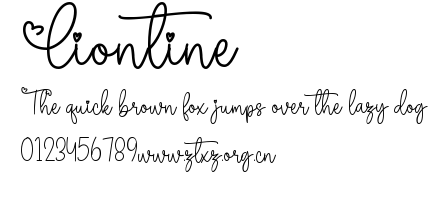 Liontine
The quick brown fox jumps over the lazy dog
0123456789www.ztxz.org.cn